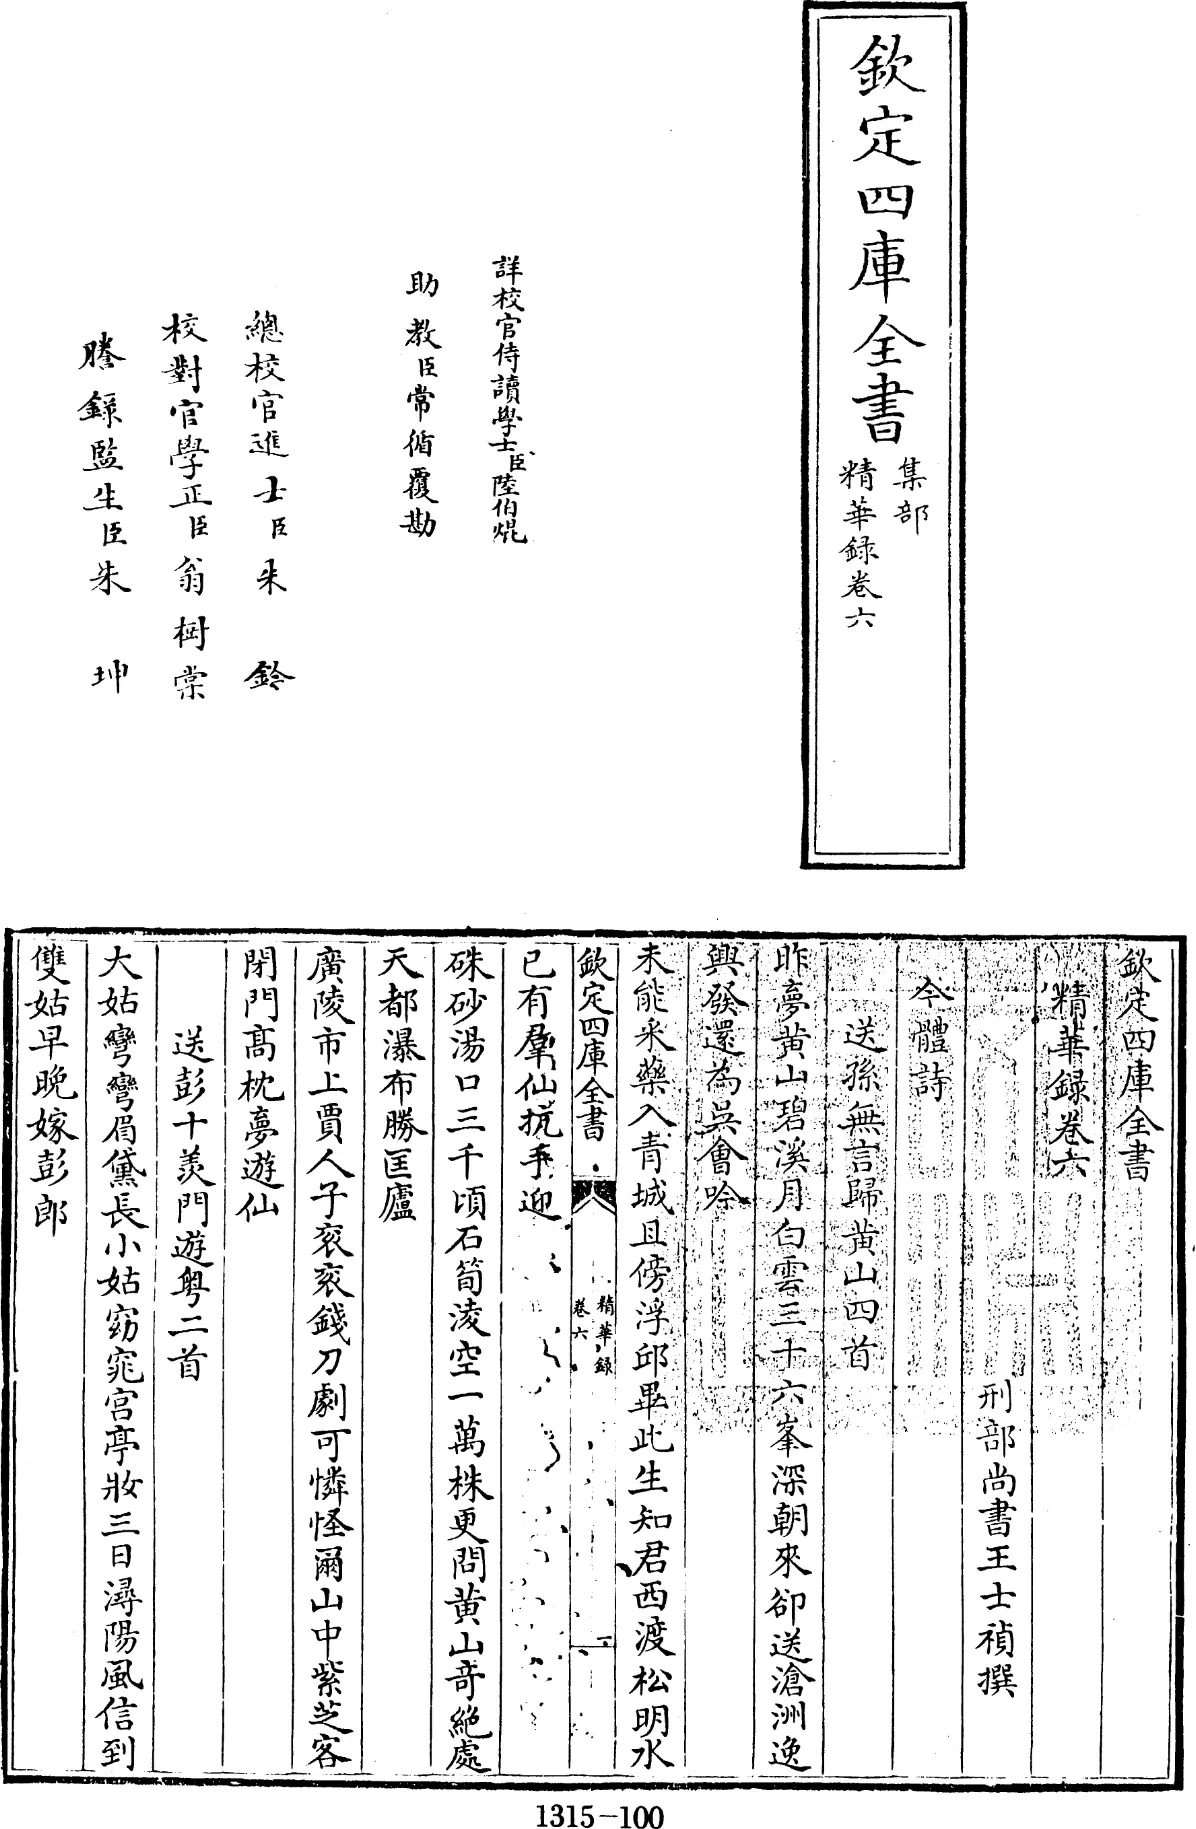 欽定四庫全書
集部
精華録卷六
詳校官侍讀學士臣陸伯焜
助教臣常循覆勘
總校官進士臣朱鈐
校對官學正臣翁樹棠
謄録監生臣朱坤
欽定四庫全書
精華録卷六
刑部尚書王士禎撰
今體詩
送孫無言歸黄山四首
昨夢黄山碧溪月白雲三十六峯深朝來卻送滄洲逸
興發還為吳會吟
未能采藥入青城且傍浮邱畢此生知君西渡松明水
欽定四庫全書
精華録
卷六
一
已有羣仙抗手迎
硃砂湯口三千頃石筍淩空一萬株更問黄山奇絶處
天都瀑布勝匡廬
廣陵市上賈人子衮衮錢刀劇可憐怪爾山中紫芝客
閉門高枕夢遊仙
送彭十羨門遊粤二首
大姑彎彎眉黛長小姑窈窕宫亭妝三日潯陽風信到
雙姑早晚嫁彭郎
1315-100